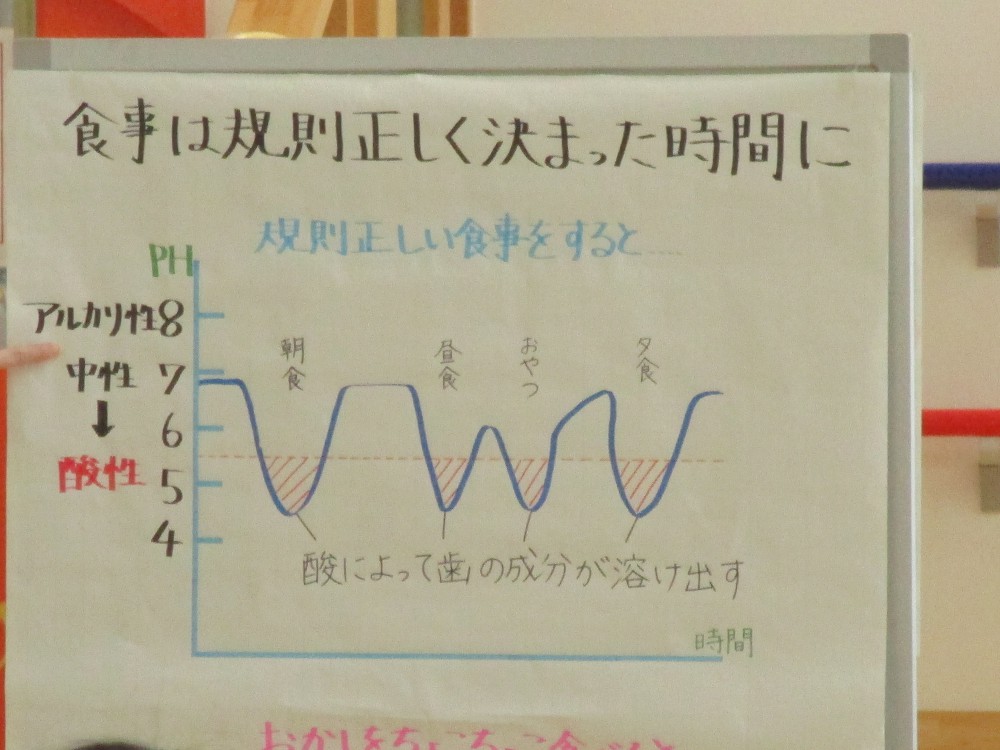 食事は規則正しく決まった時間に
規則正しい食事をすると……
PH
アルカリ性8
中性 7
↓ 6
酸性 5
4
朝食
昼食
おやつ
夕食
酸によって歯の成分が溶け出す
時間
おかしをちょこちょこ食べると